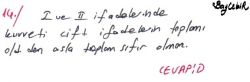 BayÇebir
14./ I ve II ifadelerinde
kuvveti çift ifadelerin toplamı
old. dan asla toplam sıfır olmaz.
CEVAP: D